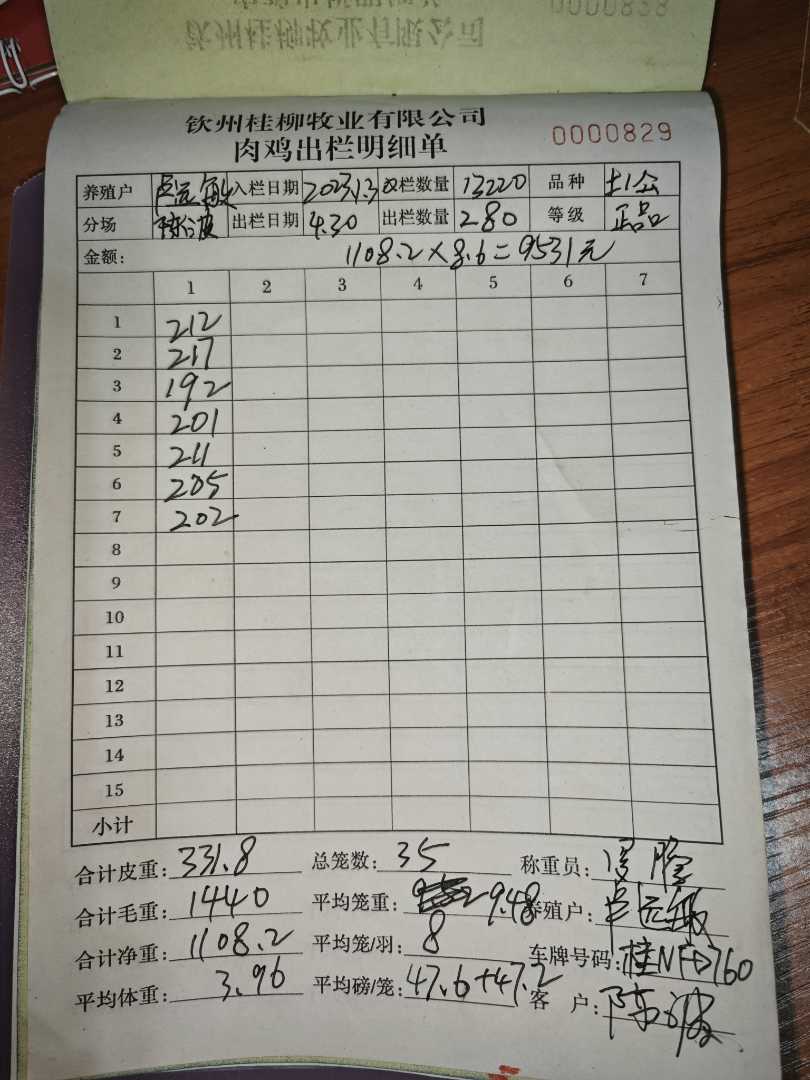 钦州桂柳牧业有限公司
0000828
钦州桂柳牧业有限公司
0000829
肉鸡出栏明细单
养殖户 卢远敏 入栏日期 2023.1.3 入栏数量 13220 品种 土1公
分场 出栏日期 4.30 出栏数量 280 等级 正品
金额: 1108.2×8.6=9531元
1 2 3 4 5 6 7
1 212
2 217
3 192
4 201
5 211
6 205
7 202
8
9
10
11
12
13
14
15
小计
合计皮重: 331.8 总笼数: 35 称重员:
合计毛重: 1440 平均笼重: 9.48 养殖户: 卢远敏
合计净重: 1108.2 平均笼/羽: 8 车牌号码: 桂NFD760
平均体重: 3.96 平均磅/笼: 47.6+47.2 客户: 陈波